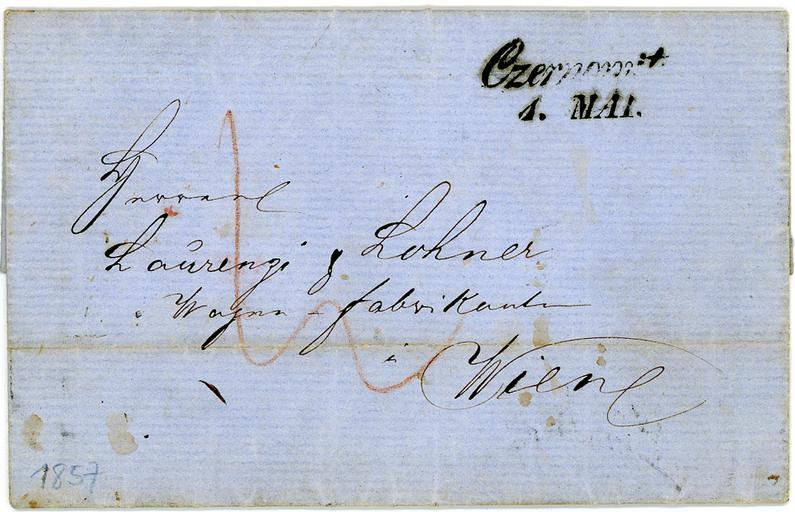 Czernowitz
1. MAI.
Herren
Laurenzi & Lohner
Wagen-fabrikanten
in Wien
1857